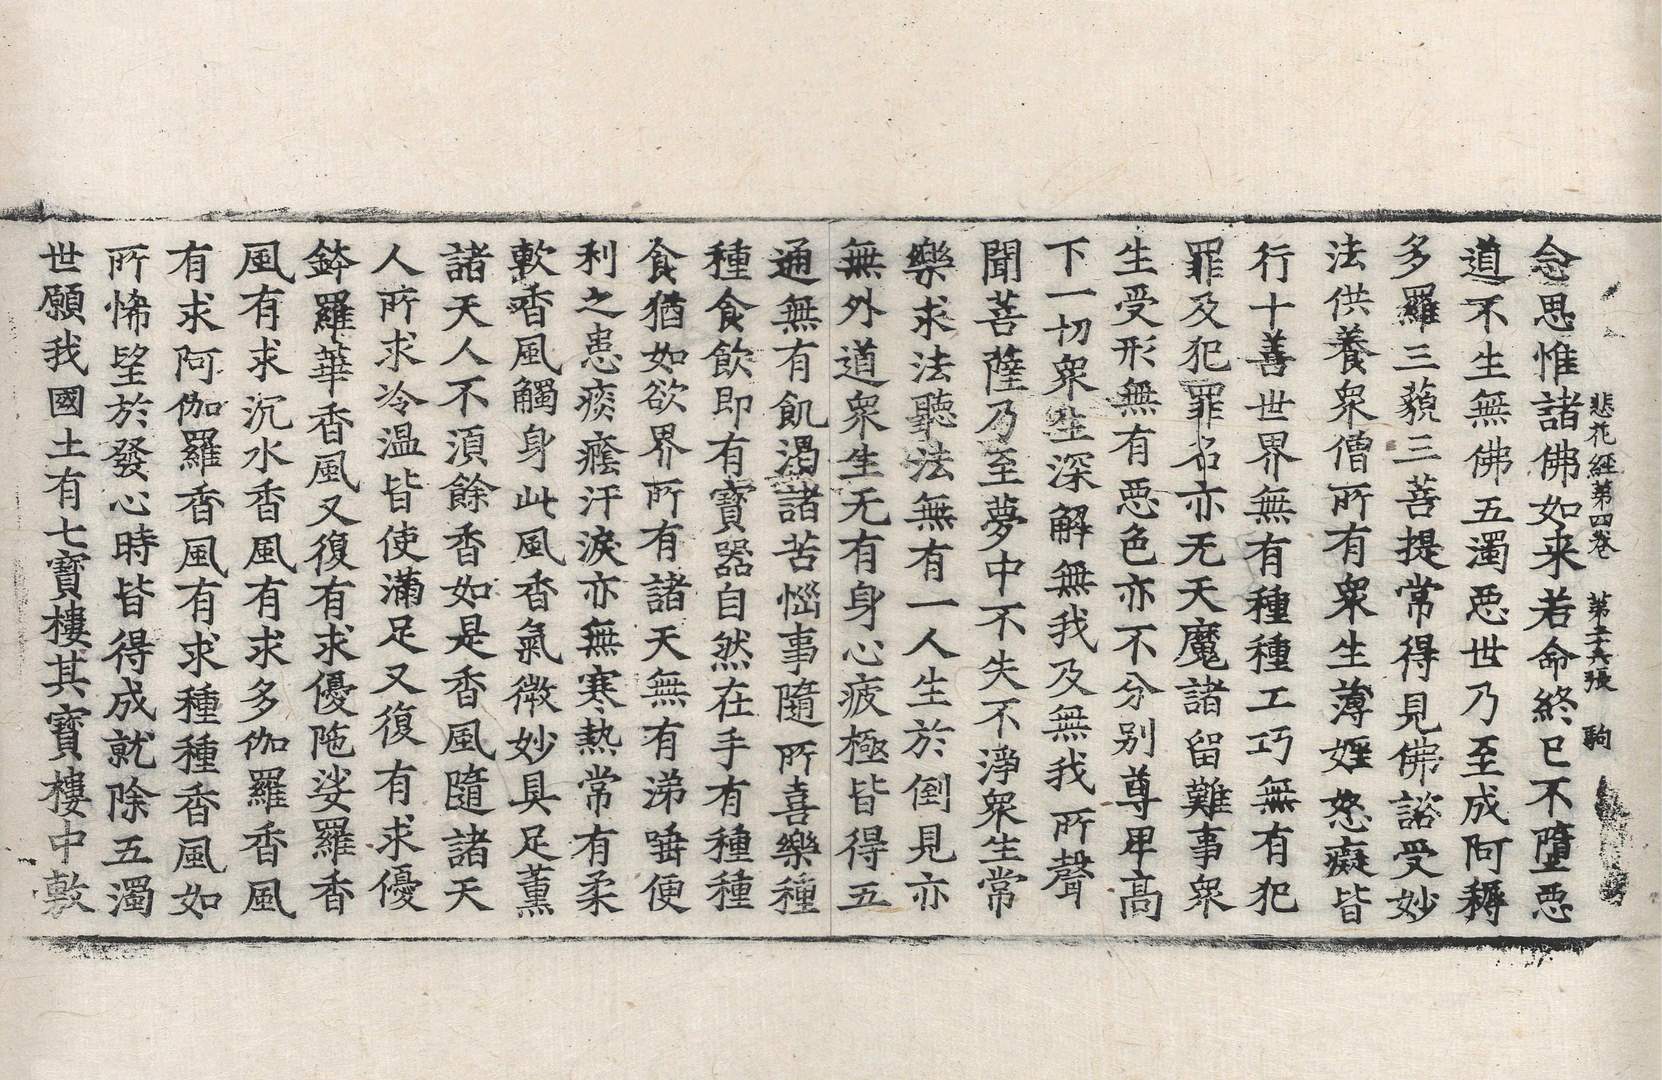 悲花経苐四卷 苐二十六張 駒
念思惟諸佛如来若命終已不墮惡
道不生無佛五濁惡世乃至成阿耨
多羅三藐三菩提常得見佛諮受妙
法供養衆僧所有衆生薄婬怒癡皆
行十善世界無有種種工巧無有犯
罪及犯罪名亦无天魔諸留難事衆
生受形無有惡色亦不分别尊卑高
下一切衆生深解無我及無我所聲
聞菩薩乃至夢中不失不淨衆生常
樂求法聽法無有一人生於倒見亦
無外道衆生无有身心疲極皆得五
通無有飢渴諸苦惱事隨所喜樂種
種食飲即有寶器自然在手有種種
食猶如欲界所有諸天無有涕唾便
利之患痰癊汗淚亦無寒熱常有柔
軟香風觸身此風香氣微妙具足薰
諸天人不湏餘香如是香風隨諸天
人所求冷温皆使滿足又復有求優
鉢羅華香風又復有求優陁娑羅香
風有求沉水香風有求多伽羅香風
有求阿伽羅香風有求種種香風如
所悕望於發心時皆得成就除五濁
世願我國土有七寶樓其寶樓中敷